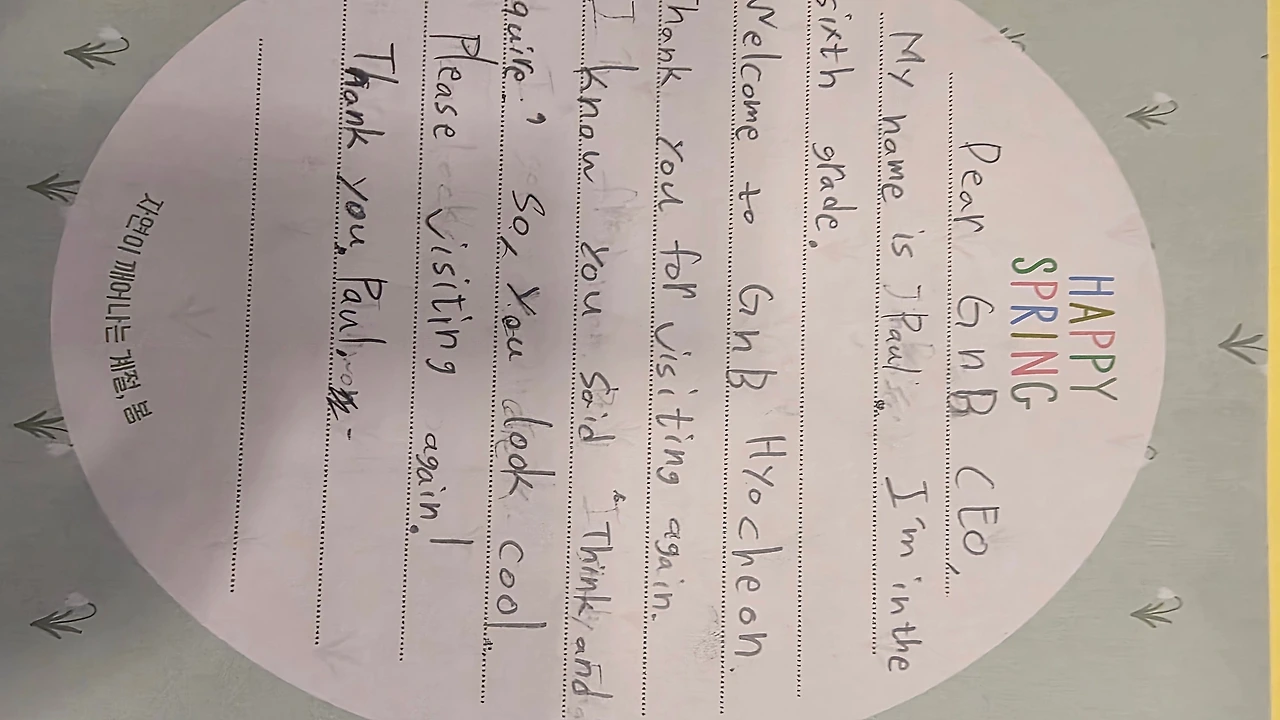 HAPPY
SPRING
Dear GnB CEO,
My name is Paul. I'm in the
sixth grade.
Welcome to GnB Hyocheon.
Thank you for visiting again.
I know you said "Think and
quire." So, you look cool.
Please visiting again!
Thank you, Paul.
자연이 깨어나는 계절, 봄